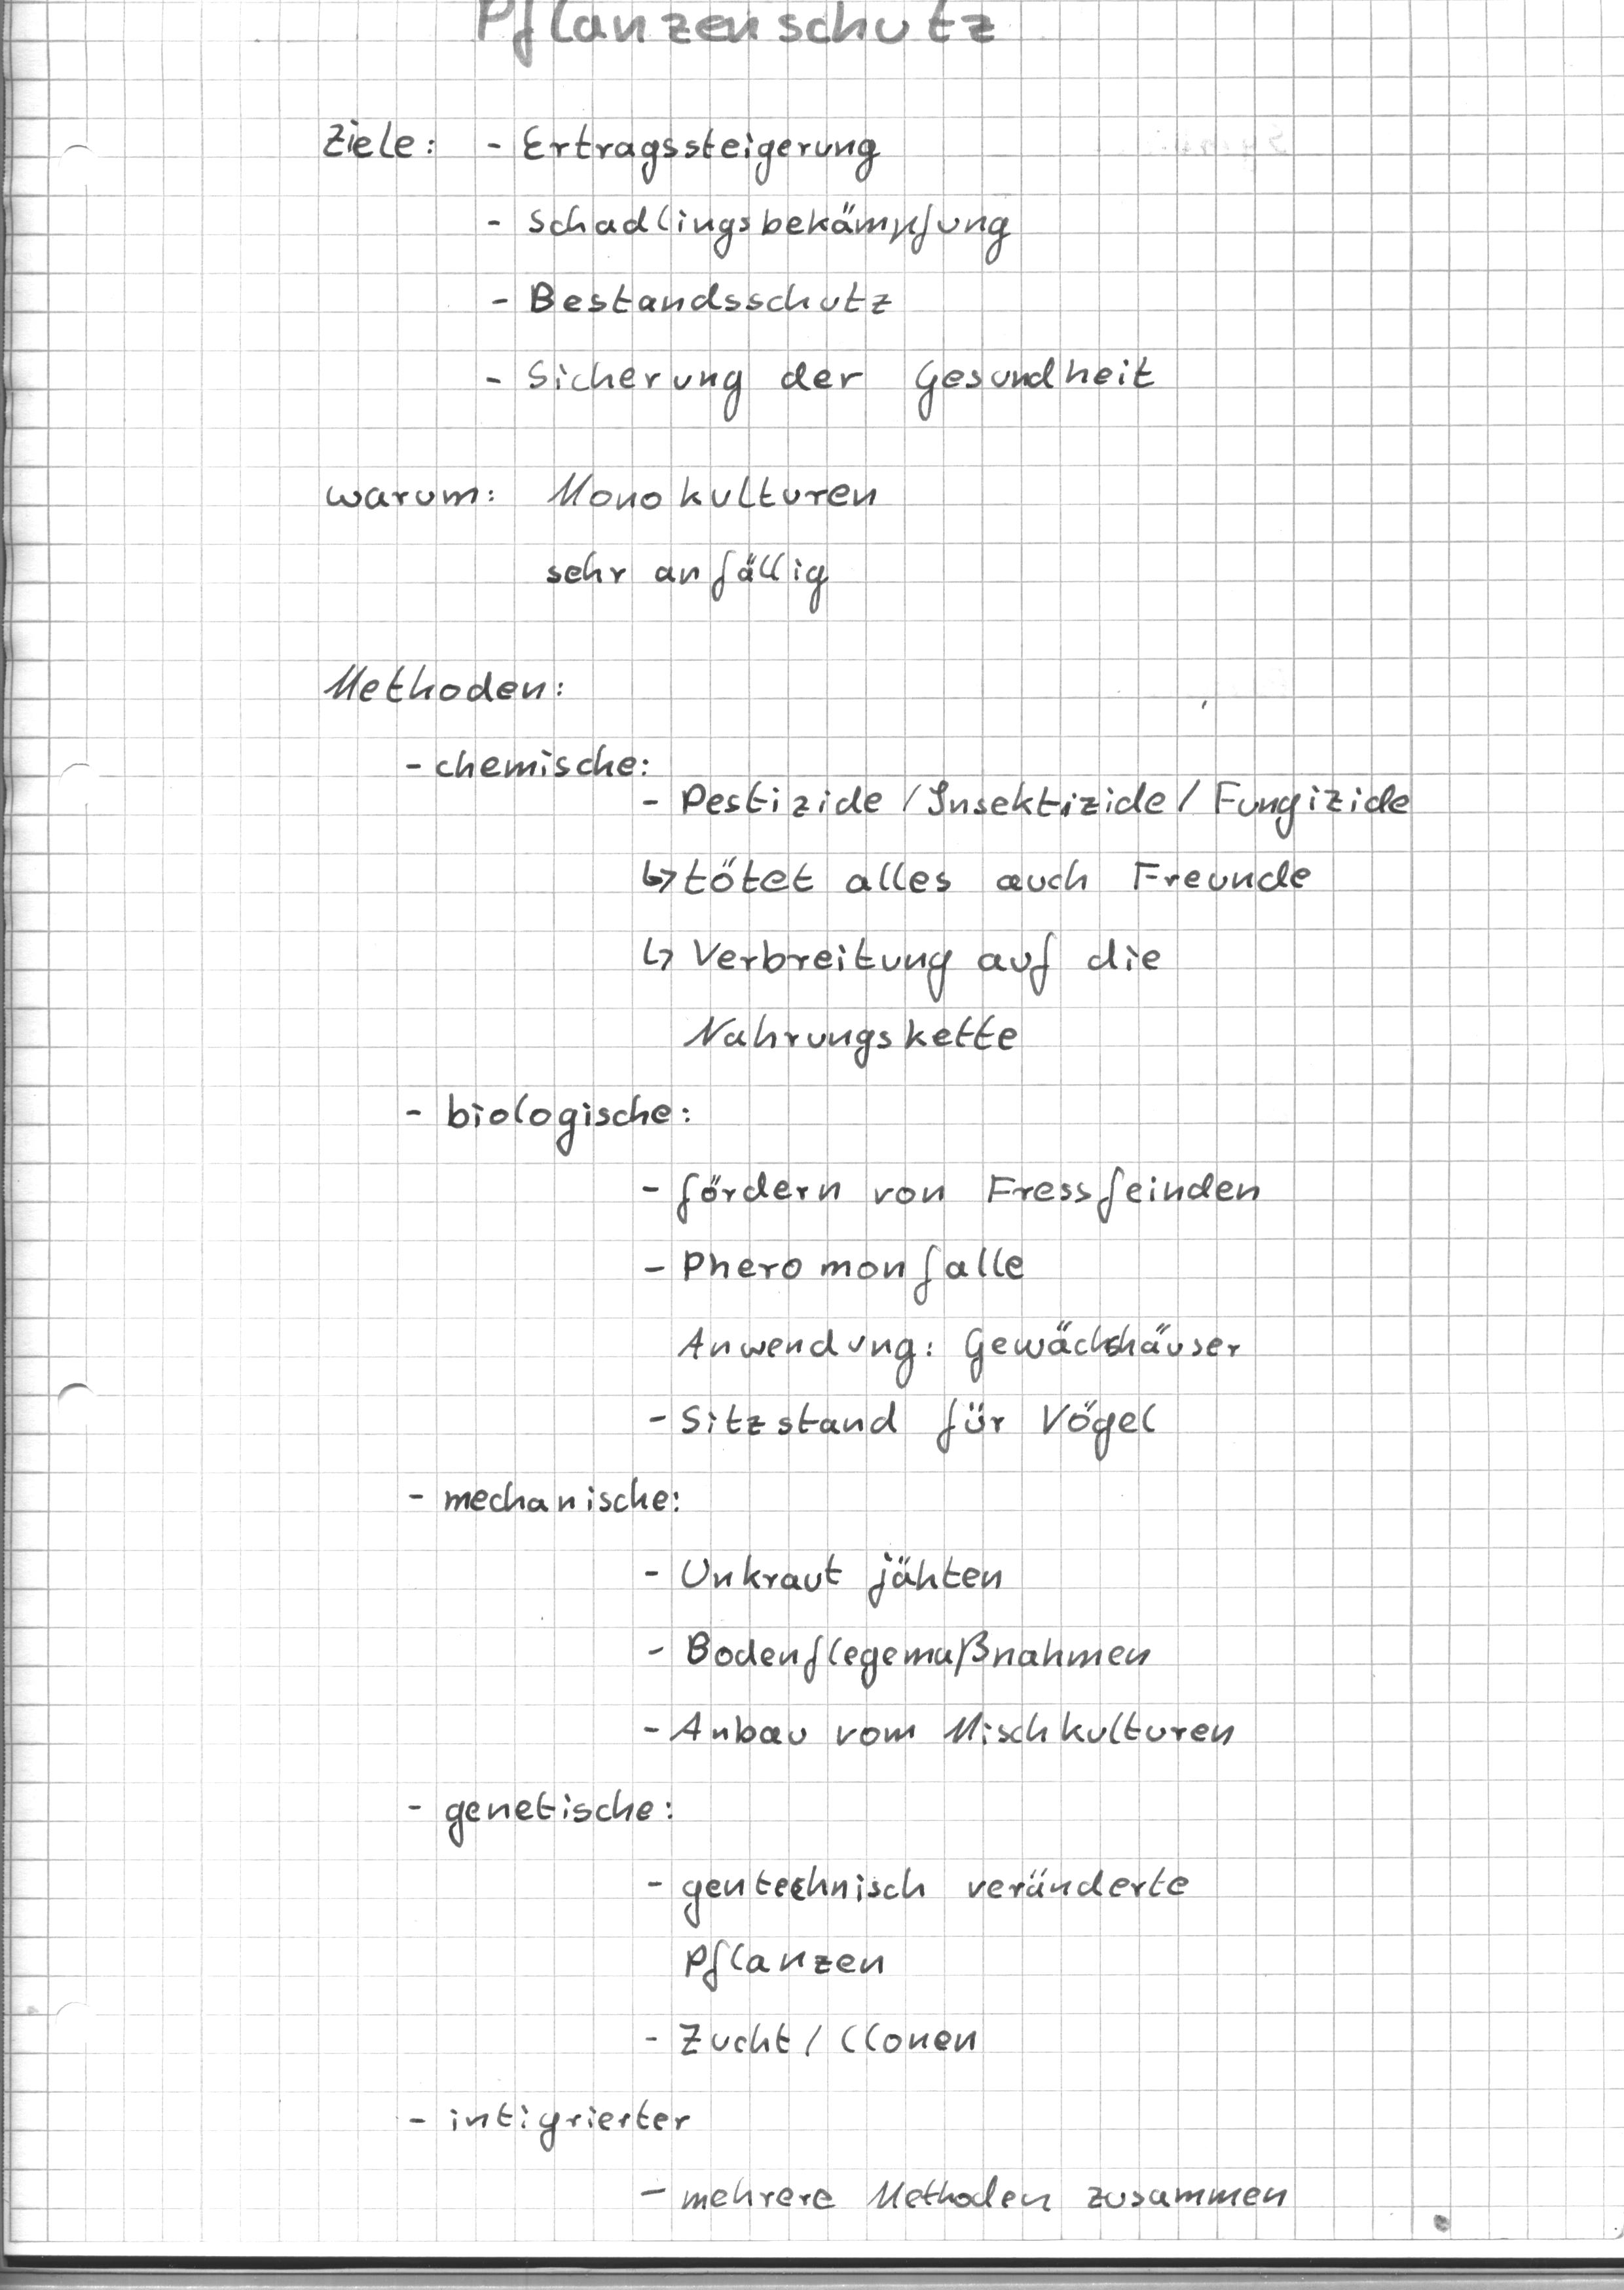 Pflanzenschutz
Ziele: - Ertragssteigerung
- Schadlingsbekämpfung
- Bestandsschutz
- Sicherung der Gesundheit
warum: Monokulturen
sehr anfällig
Methoden:
- chemische:
- Pestizide / Insektizide / Fungizide
↳ tötet alles auch Freunde
↳ Verbreitung auf die
Nahrungskette
- biologische:
- fördern von Fressfeinden
- Pheromonfalle
Anwendung: Gewächshäuser
- Sitzstand für Vögel
- mechanische:
- Unkraut jähten
- Bodenflegemaßnahmen
- Anbau vom Mischkulturen
- genetische:
- gentechnisch veränderte
Pflanzen
- Zucht / Clonen
- intigrierter
- mehrere Methoden zusammen